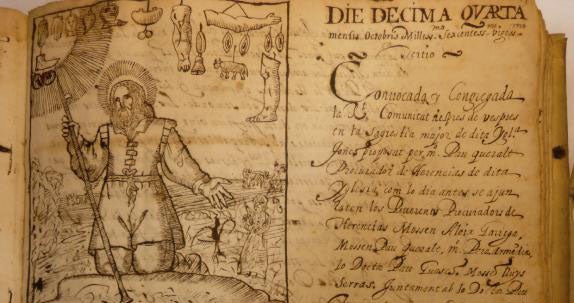 DIE DECIMA QVARTA
mensis Octobris Milles.º Sexcentess.º viges.mo
tertio
Convocada y Congregada
la R.t Comunitat despres de vespres
en la sagrestia major de dita Igl.ª
fonch proposat per m.º Pau queralt
Procurador de Herencias de dita
Iglesia, com lo dia antes se ajun
taren los Reverents Procuradors de
Herencias Mossen Aloix
Mossen Pau queralt, m.º Pere
lo Doctor Pau Mossen lluys
Serras, Juntament ab lo